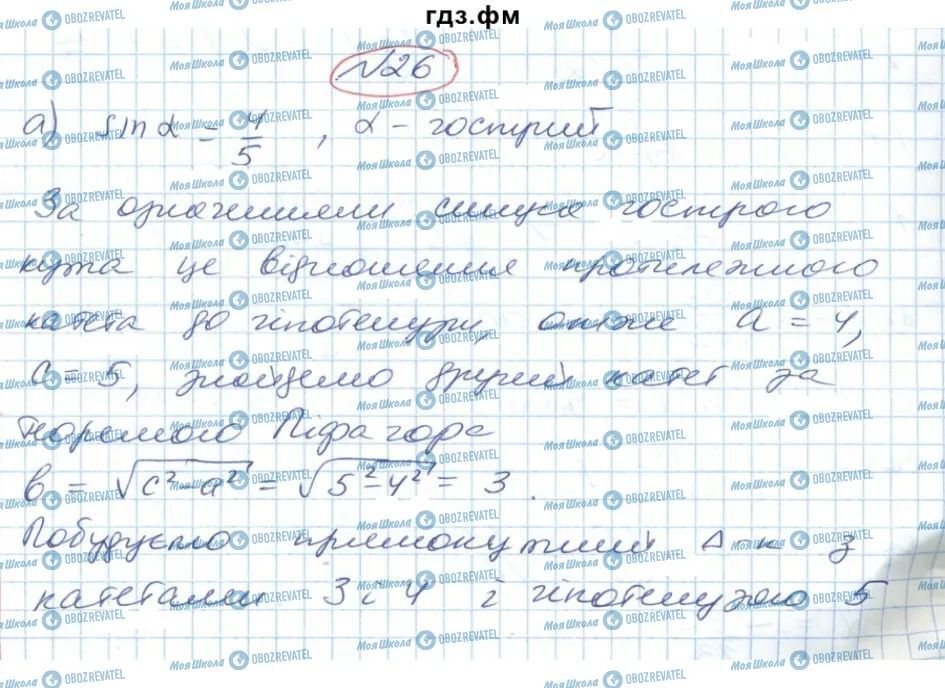 гдз.фм
№26
а) sin α = 4/5 , α – гострий
За означенням синуса гострого
кута це відношення протилежного
катета до гіпотенузи, отже a = 4,
c = 5, знайдемо другий катет за
теоремою Піфагора
в = √(c² – a²) = √(5² – 4²) = 3.
Побудуємо прямокутний Δ-к з
катетами 3 і 4 і гіпотенузою 5
МояШкола OBOZREVATEL